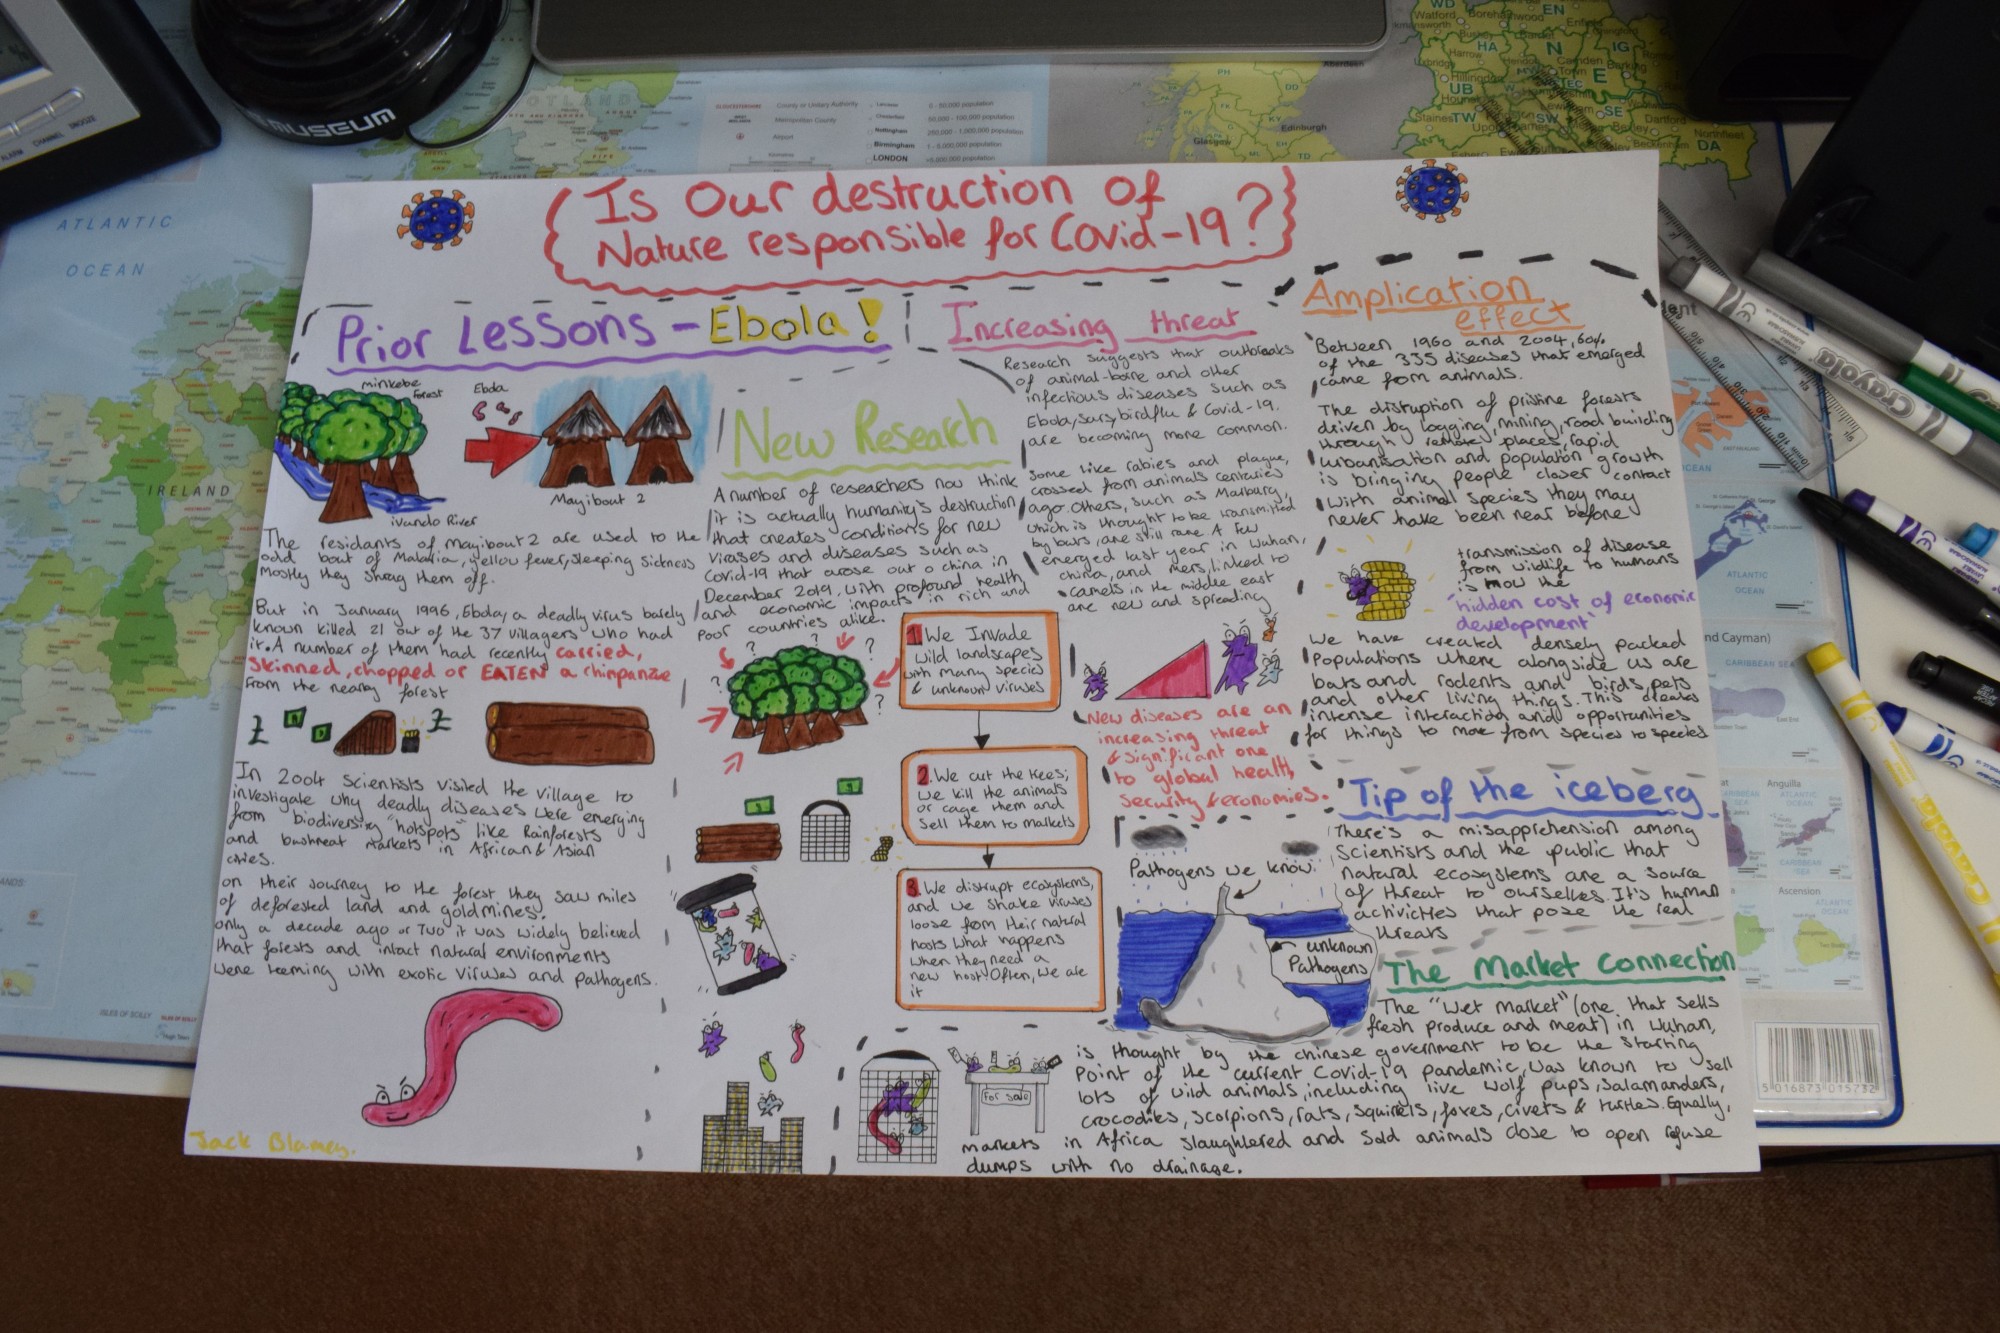 Is Our destruction of
Nature responsible for Covid-19?
Prior Lessons - Ebola!
minkebe
forest
Ebola
Mayibout 2
ivando River
The residants of mayibout 2 are used to the
odd bout of Malaria, yellow fever, sleeping sickness
Mostly they shrug them off.
But in January 1996, Ebola, a deadly virus barely
known killed 21 out of the 37 villagers who had
it. A number of them had recently carried,
skinned, chopped or EATEN a chimpanzee
from the nearby forest
£
£
In 2004 scientists visited the village to
investigate why deadly diseases were emerging
from biodiversity "hotspots" like Rainforests
and bushmeat markets in African & Asian
cities.
on their journey to the forest they saw miles
of deforested land and goldmines.
only a decade ago or Two it was widely believed
that forests and intact natural environments
were teeming with exotic viruses and pathogens.
Jack Blamey.
New Research
A number of researchers now think
it is actually humanity's destruction
that creates conditions for new
viruses and diseases such as
Covid-19 that arose out o china in
December 2019, with profound health
and economic impacts in rich and
poor countries alike.
1. We Invade
wild landscapes
with many species
& unknown viruses
2. We cut the trees;
we kill the animals
or cage them and
sell them to markets
3. We disrupt ecosystems,
and we shake viruses
loose from their natural
hosts what happens
when they need a
new host. Often, we are
it
Increasing threat
Research suggests that outbreaks
of animal-borne and other
infectious diseases such as
Ebola, sars, birdflu & Covid-19.
are becoming more common.
Some like rabies and plague,
crossed from animals centuries
ago. Others, such as Marburg,
which is thought to be transmitted
by bats, are still rare. A few
emerged last year in Wuhan,
china, and mers, linked to
camels in the middle east
are new and spreading
New diseases are an
increasing threat
& significant one
to global health,
security & economies.
Pathogens we know.
unknown
Pathogens
Amplication
effect
Between 1960 and 2004, 60%
of the 335 diseases that emerged
came from animals.
The disruption of pristine forests
driven by logging, mining, road building
through remote places, rapid
urbanisation and population growth
is bringing people closer contact
with animal species they may
never have been near before
transmission of disease
from wildlife to humans
is now the
"hidden cost of economic
development"
We have created densely packed
Populations where alongside us are
bats and rodents and birds, pets
and other living things. This creates
intense interaction and opportunities
for things to move from species to species
Tip of the iceberg
There's a misapprehension among
Scientists and the public that
natural ecosystems are a source
of threat to ourselves. It's human
activities that pose the real
threats
The Market connection
The "wet market" (one that sells
fresh produce and meat) in Wuhan,
is thought by the chinese government to be the starting
point of the current Covid-19 pandemic, was known to sell
lots of wild animals, including live wolf pups, salamanders,
crocodiles, scorpions, rats, squirrels, foxes, civets & turtles. Equally,
markets in Africa slaughtered and sold animals close to open refuse
dumps with no drainage.
For sale
MUSEUM
ALARM
CHANNEL
SNOOZE
ATLANTIC
OCEAN
IRELAND
SCOTLAND
County or Unitary Authority
Metropolitan County
Airport
Nottingham
Birmingham
LONDON
0 - 50,000 population
50,000 - 100,000 population
Edinburgh
Glasgow
Aberdeen
Crayola
Crayola
nd Cayman)
CARIBBEAN SEA
ATLANTIC
OCEAN
Anguilla
Ascension
ISLES OF SCILLY
5 016873 015732